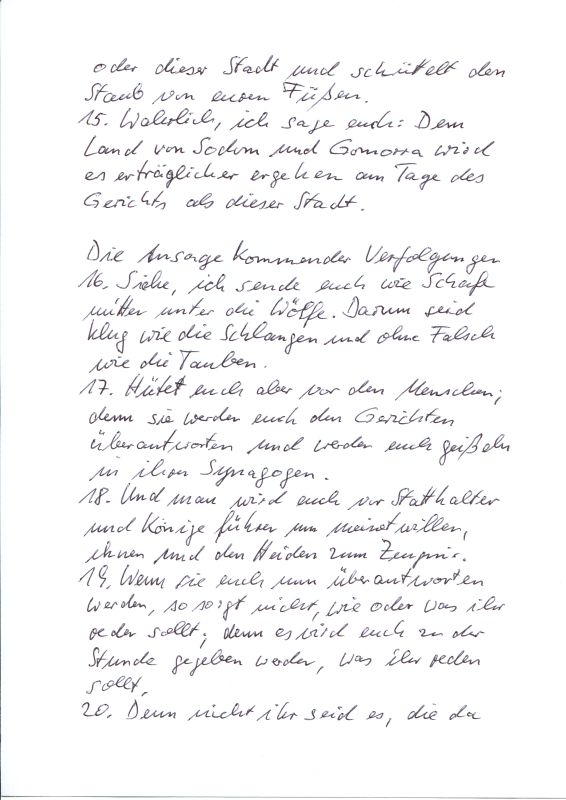 oder dieser Stadt und schüttelt den
Staub von euren Füßen.
15. Wahrlich, ich sage euch: Dem
Land von Sodom und Gomorra wird
es erträglicher ergehen am Tage des
Gerichts als dieser Stadt.
Die Ansage kommender Verfolgungen
16. Siehe, ich sende euch wie Schafe
mitten unter die Wölfe. Darum seid
klug wie die Schlangen und ohne Falsch
wie die Tauben.
17. Hütet euch aber vor den Menschen;
denn sie werden euch den Gerichten
überantworten und werden euch geißeln
in ihren Synagogen.
18. Und man wird euch vor Statthalter
und Könige führen um meinetwillen,
ihnen und den Heiden zum Zeugnis.
19. Wenn sie euch nun überantworten
werden, so sorgt nicht, wie oder was ihr
reden sollt; denn es wird euch zu der
Stunde gegeben werden, was ihr reden
sollt.
20. Denn nicht ihr seid es, die da